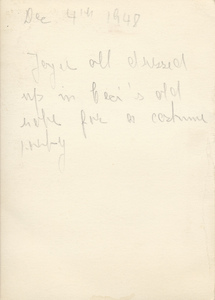 Dec. 4th 1948
Joyce all dressed
up in Ceci's old
robe for a costume
party